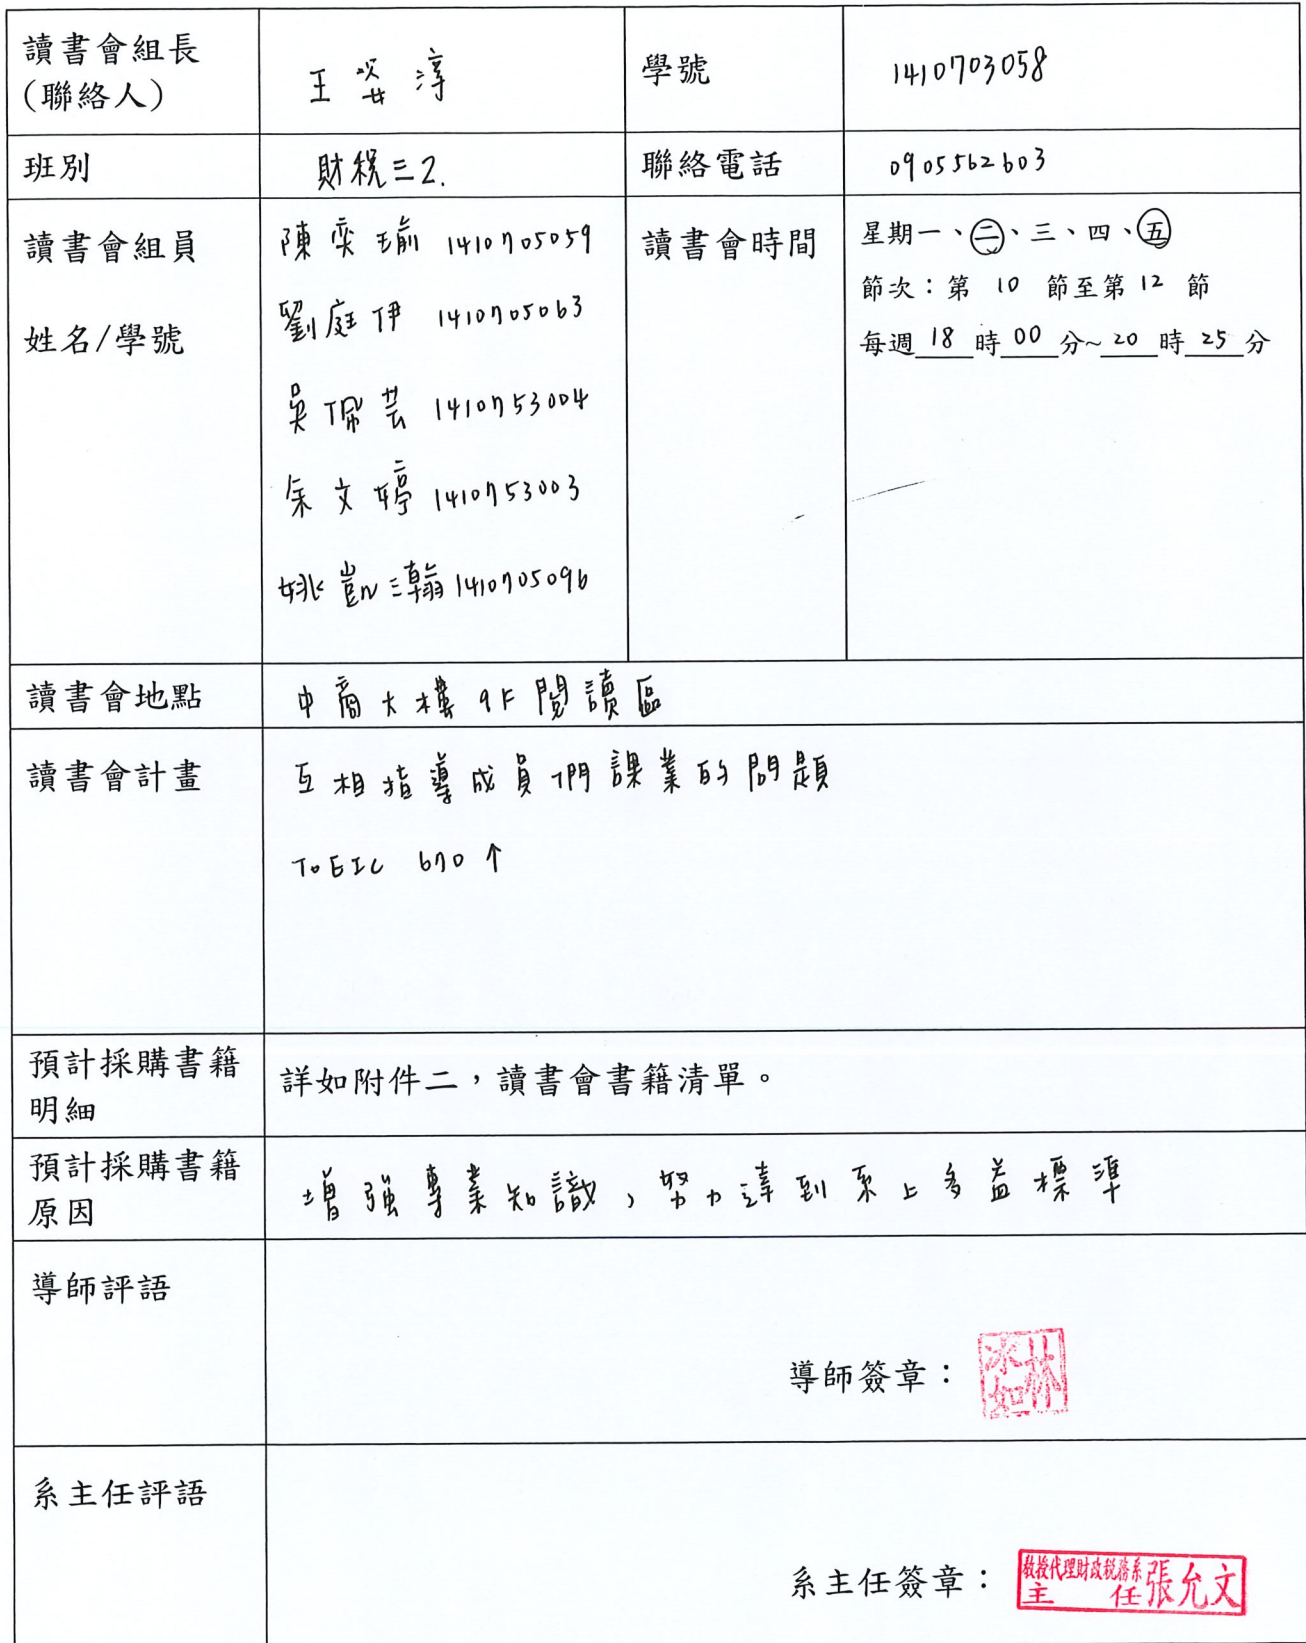 讀書會組長
(聯絡人)
王姿淳
學號
1410703058
班別
財稅三2.
聯絡電話
0905562603
讀書會組員
姓名/學號
陳奕瑜 1410705059
劉庭伊 1410705063
吳佩芸 1410753004
余文婷 1410753003
姚凱瀚 1410705096
讀書會時間
星期一、二、三、四、五
節次：第 10 節至第 12 節
每週 18 時 00 分~ 20 時 25 分
讀書會地點
中商大樓 9F 閱讀區
讀書會計畫
互相指導成員們課業的問題
TOEIC 670 ↑
預計採購書籍
明細
詳如附件二，讀書會書籍清單。
預計採購書籍
原因
增強專業知識，努力達到系上多益標準
導師評語
導師簽章：
林冰如
系主任評語
系主任簽章：
教授代理財政稅務系
主任 張允文